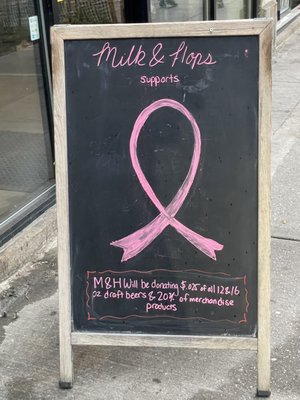 Milk & Hops
supports
M&H Will be donating $.025 of all 12&16
oz draft beers & 20% of merchandise
products